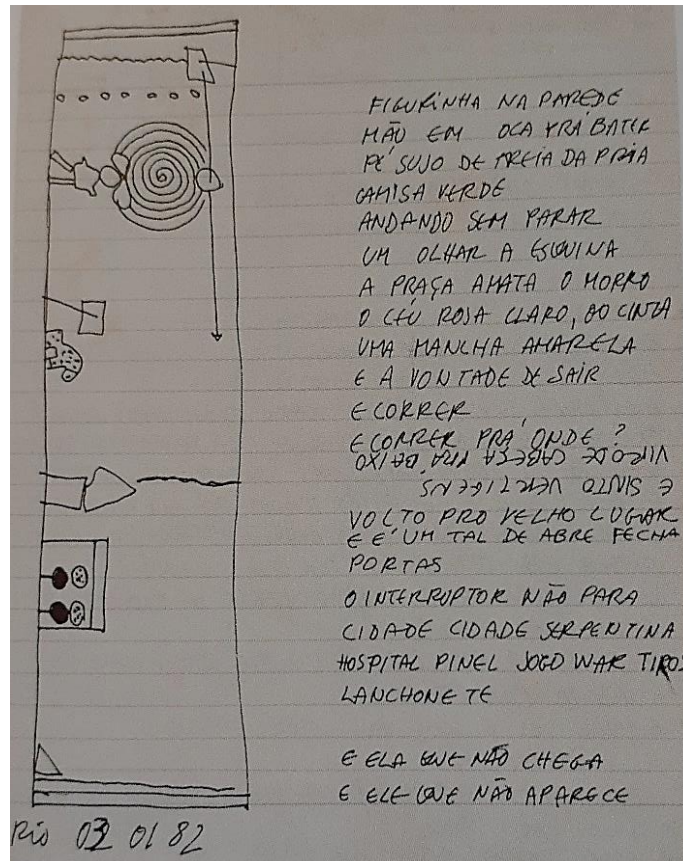 FIGURINHA NA PAREDE
MÃO EM OCA PRÁ BATER
PÉ SUJO DE AREIA DA PRAIA
CAMISA VERDE
ANDANDO SEM PARAR
UM OLHAR A ESQUINA
A PRAÇA A MATA O MORRO
O CÉU ROSA CLARO, OO CINZA
UMA MANCHA AMARELA
E A VONTADE DE SAIR
E CORRER
E CORRER PRÁ ONDE ?
VIRO DE CABEÇA PRA BAIXO
E SINTO VERTIGENS
VOLTO PRO VELHO LUGAR
E É UM TAL DE ABRE FECHA
PORTAS
O INTERRUPTOR NÃO PARA
CIDADE CIDADE SERPENTINA
HOSPITAL PINEL JOGO WAR TIROS
LANCHONETE
E ELA QUE NÃO CHEGA
E ELE QUE NÃO APARECE
Rio 03 01 82